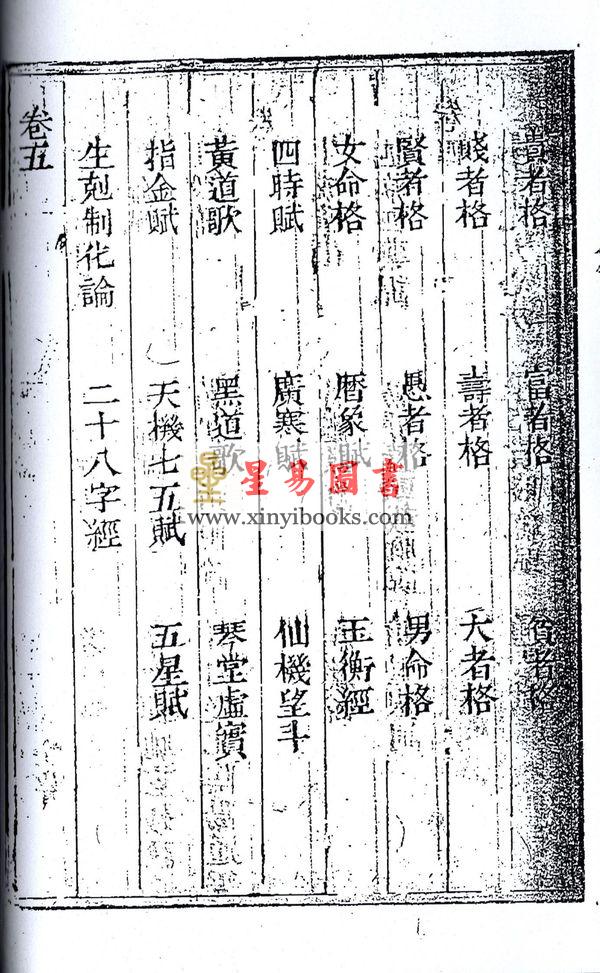 貴者格 富者格 貧者格
賤者格 壽者格 夭者格
賢者格 愚者格 男命格
女命格 曆象賦 玉衡經
四時賦 廣寒賦 仙機望斗
黃道歌 黑道歌 琴堂虛實
指金賦 天機七五賦 五星賦
生剋制化論 二十八字經
卷五
星易圖書
www.xinyibooks.com